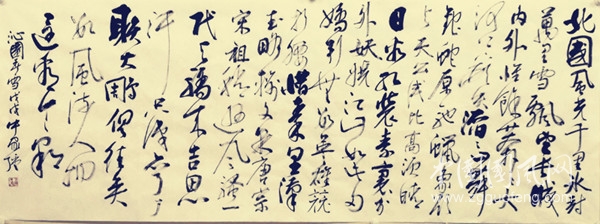 北國風光千里冰封
萬里雪飄望長城
内外惟餘莽莽大
河上下頓失滔滔山舞
銀蛇原馳蠟象欲
與天公試比高須晴
日看紅裝素裹分
外妖嬈江山如此多
嬌引無數英雄競
折腰惜秦皇漢
武略輸文采唐宗
宋祖稍遜風騷一
代天驕成吉思
汗只識彎弓
射大雕俱往矣
數風流人物
還看今朝
沁園春雪戊戌